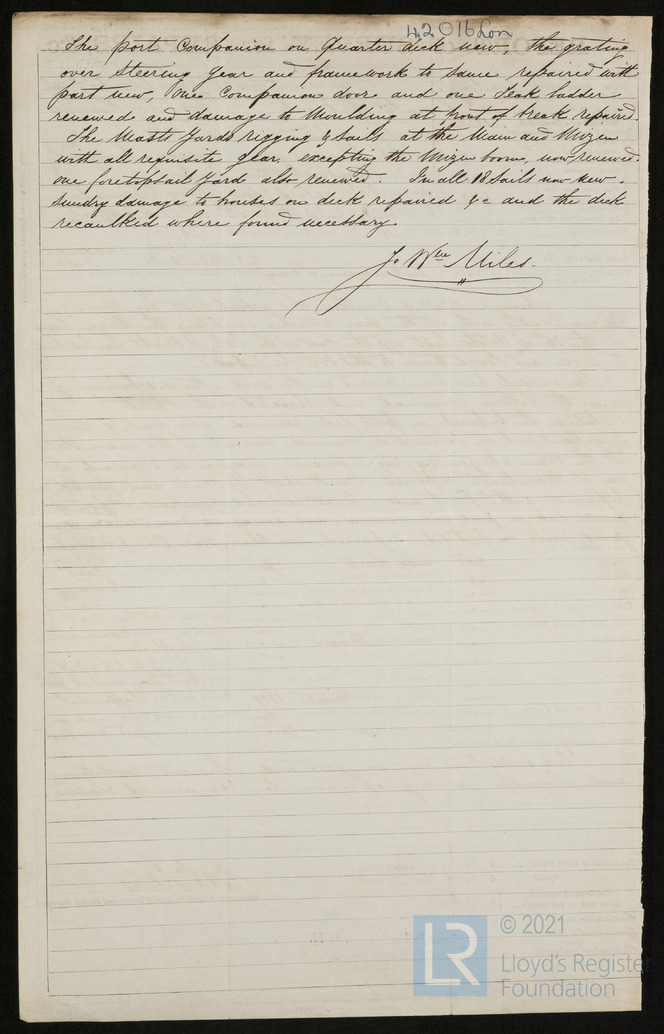 42016 Lon
The port Companion on Quarter deck new, the grating
over Steering Gear and framework to same repaired with
part new, One Companion door and one Teak ladder
renewed and damage to Moulding at front of break repaired.
The Masts Yards rigging & Sails at the Main and Mizen
with all requisite gear, excepting the Mizen boom, now renewed.
one foretopsail Yard also renewed. In all 18 Sails now new.
Sundry damage to houses on deck repaired &c and the deck
recaulked where found necessary.
Jo Wm Miles.
LR
© 2021
Lloyd's Register
Foundation